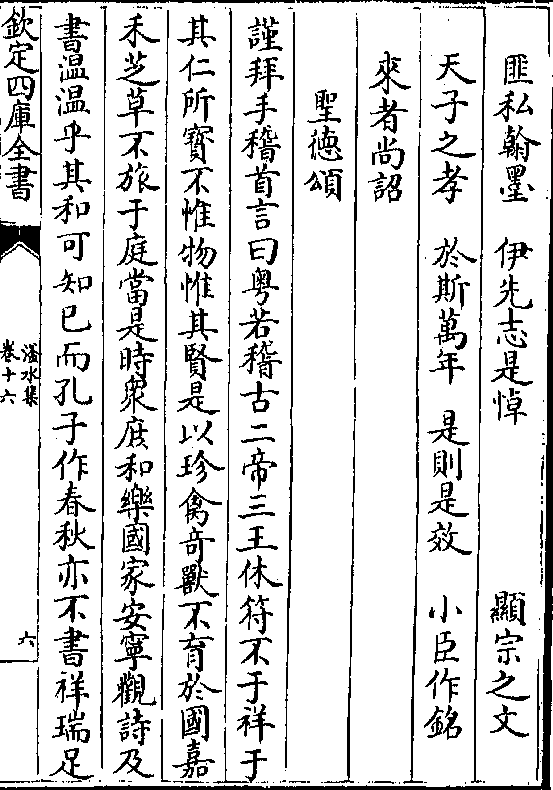 匪私翰墨　伊先志是悼　顯宗之文
天子之孝　於斯萬年　是則是效　小臣作銘
來者尚詔
聖德頌
謹拜手稽首言曰粵若稽古二帝三王休符不于祥于
其仁所寳不惟物惟其賢是以珍禽奇獸不育於國嘉
禾芝草不旅于庭當是時衆庶和樂國家安寧觀詩及
書温温乎其和可知已而孔子作春秋亦不書祥瑞足
欽定四庫全書
滏水集
卷十六
六